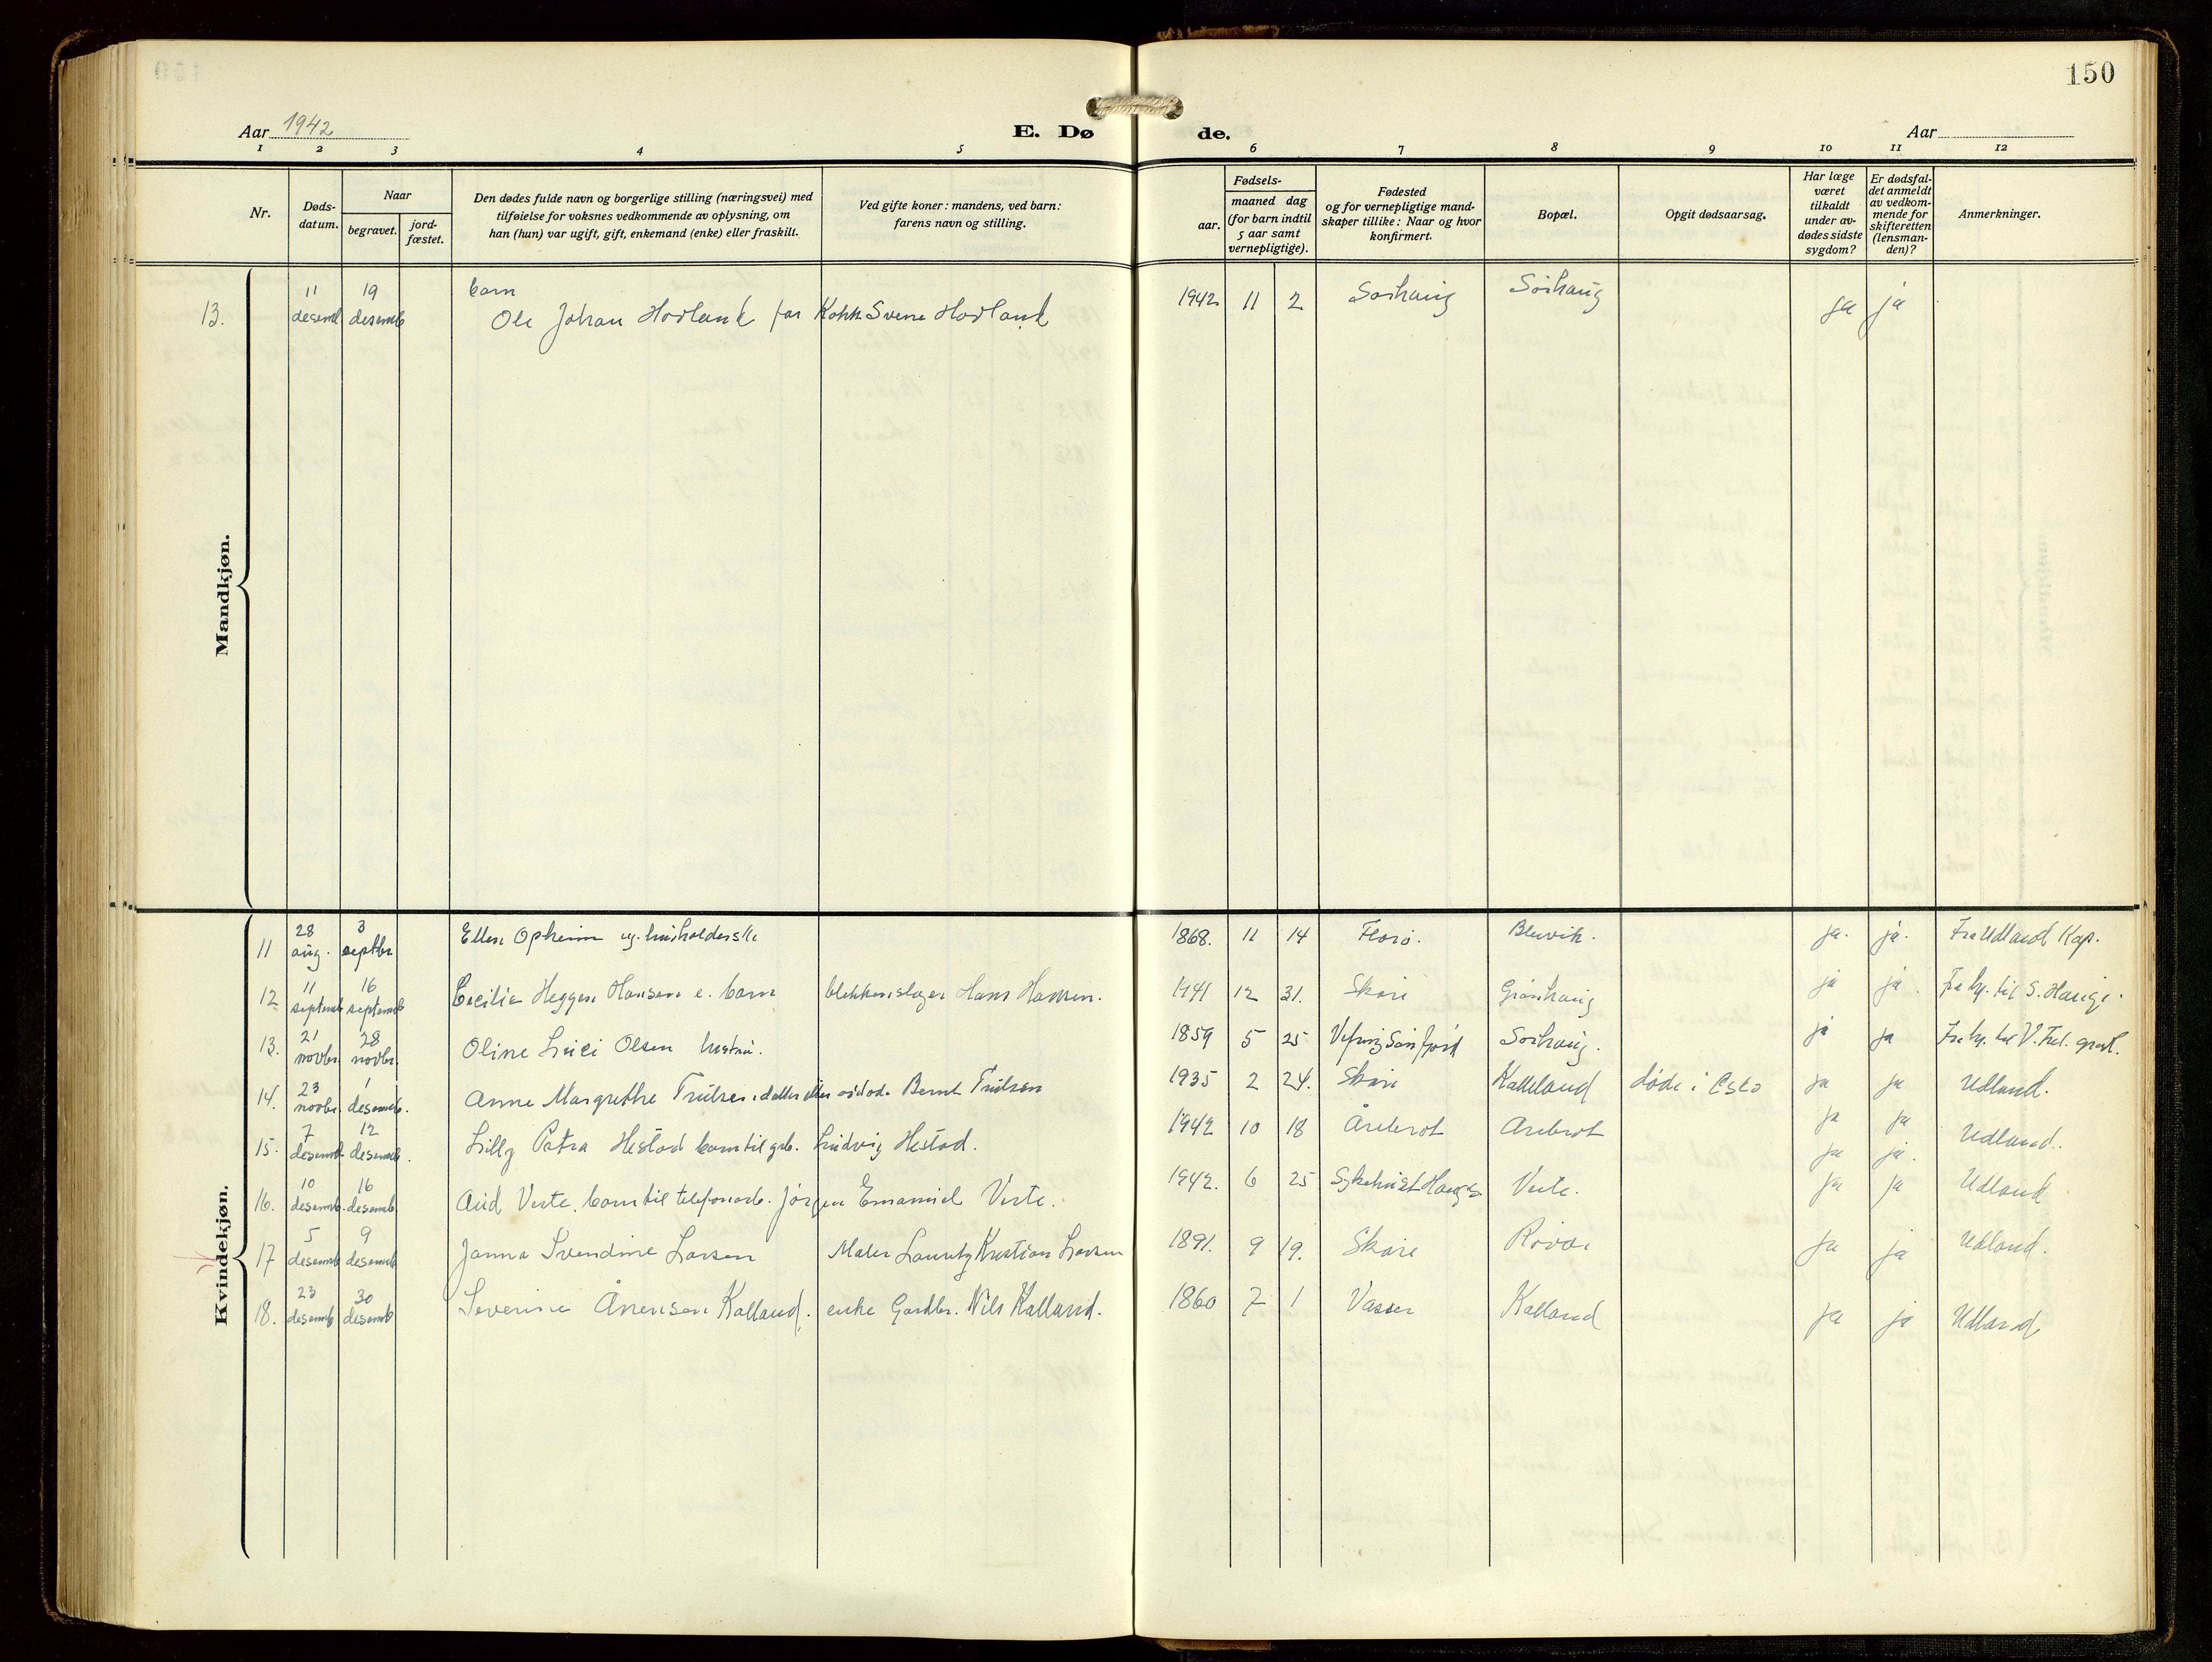 150
Aar 1942
E. Dø de.
Aar
1 2 3 4 5 6 7 8 9 10 11 12
Nr.
Døds-
datum.
Naar
begravet.
jord-
fæstet.
Den dødes fulde navn og borgerlige stilling (næringsvei) med
tilføielse for voksnes vedkommende av oplysning, om
han (hun) var ugift, gift, enkemand (enke) eller fraskilt.
Ved gifte koner: mandens, ved barn:
farens navn og stilling.
Fødsels-
aar.
maaned dag
(for barn indtil
5 aar samt
vernepligtige).
Fødested
og for vernepligtige mand-
skaper tillike: Naar og hvor
konfirmert.
Bopæl.
Opgit dødsaarsag.
Har læge
været
tilkaldt
under av-
dødes sidste
sygdom?
Er dødsfal-
det anmeldt
av vedkom-
mende for
skifteretten
(lensman-
den)?
Anmerkninger.
Mandkjøn.
13. 11 desemb 19 desemb barn Ole Johan Hovland far Kokk Svenn Hovland 1942 11 2 Sørhaug Sørhaug ja ja
Kvindekjøn.
11 28 aug. 3 septbr Ellen Opheim ug. husholderske 1868. 11 14 Florø. Bleivik. ja. ja. Fra Udland Kap.
12 11 septemb 16 septemb Cecilie Heggen Hansen e. barn blikkenslager Hans Hansen. 1941 12 31. Skåre Grønhaug ja ja. Fra by. til S. Hauge.
13. 21 novbr. 28 novbr. Oline Olsen hustru. 1859 5 25 Sørhaug. ja ja Fra by. til V. Frel. gravl.
14. 23 novbr. 1 desemb. Anne Margrethe Trulsen, datter Bernt Trulsen 1935 2 24. Skåre Kalleland døde i Oslo ja ja Udland.
15. 7 desemb 12 desemb. Lilly Petra Hestad barn til grb. Ludvig Hestad. 1942 10 18 Årebrot Arebrot ja ja Udland.
ja ja.
16. 10 desemb. 16 desemb Aud Veste, barn til telefonarb. Jørgen Emanuel Veste. 1942. 6 25 Sykehuset Hauges. Veste. ja ja Udland
17 5 desemb 9 desemb Janna Svendine Larsen Maler Lauritz Kristian Larsen 1891. 9 19. Skåre Røvær ja ja Udland.
18. 23 desemb 30 desemb Severine Årensen Kalland. enke Gardbr. Nils Kalland. 1860 7 1 Kalland ja ja Udland